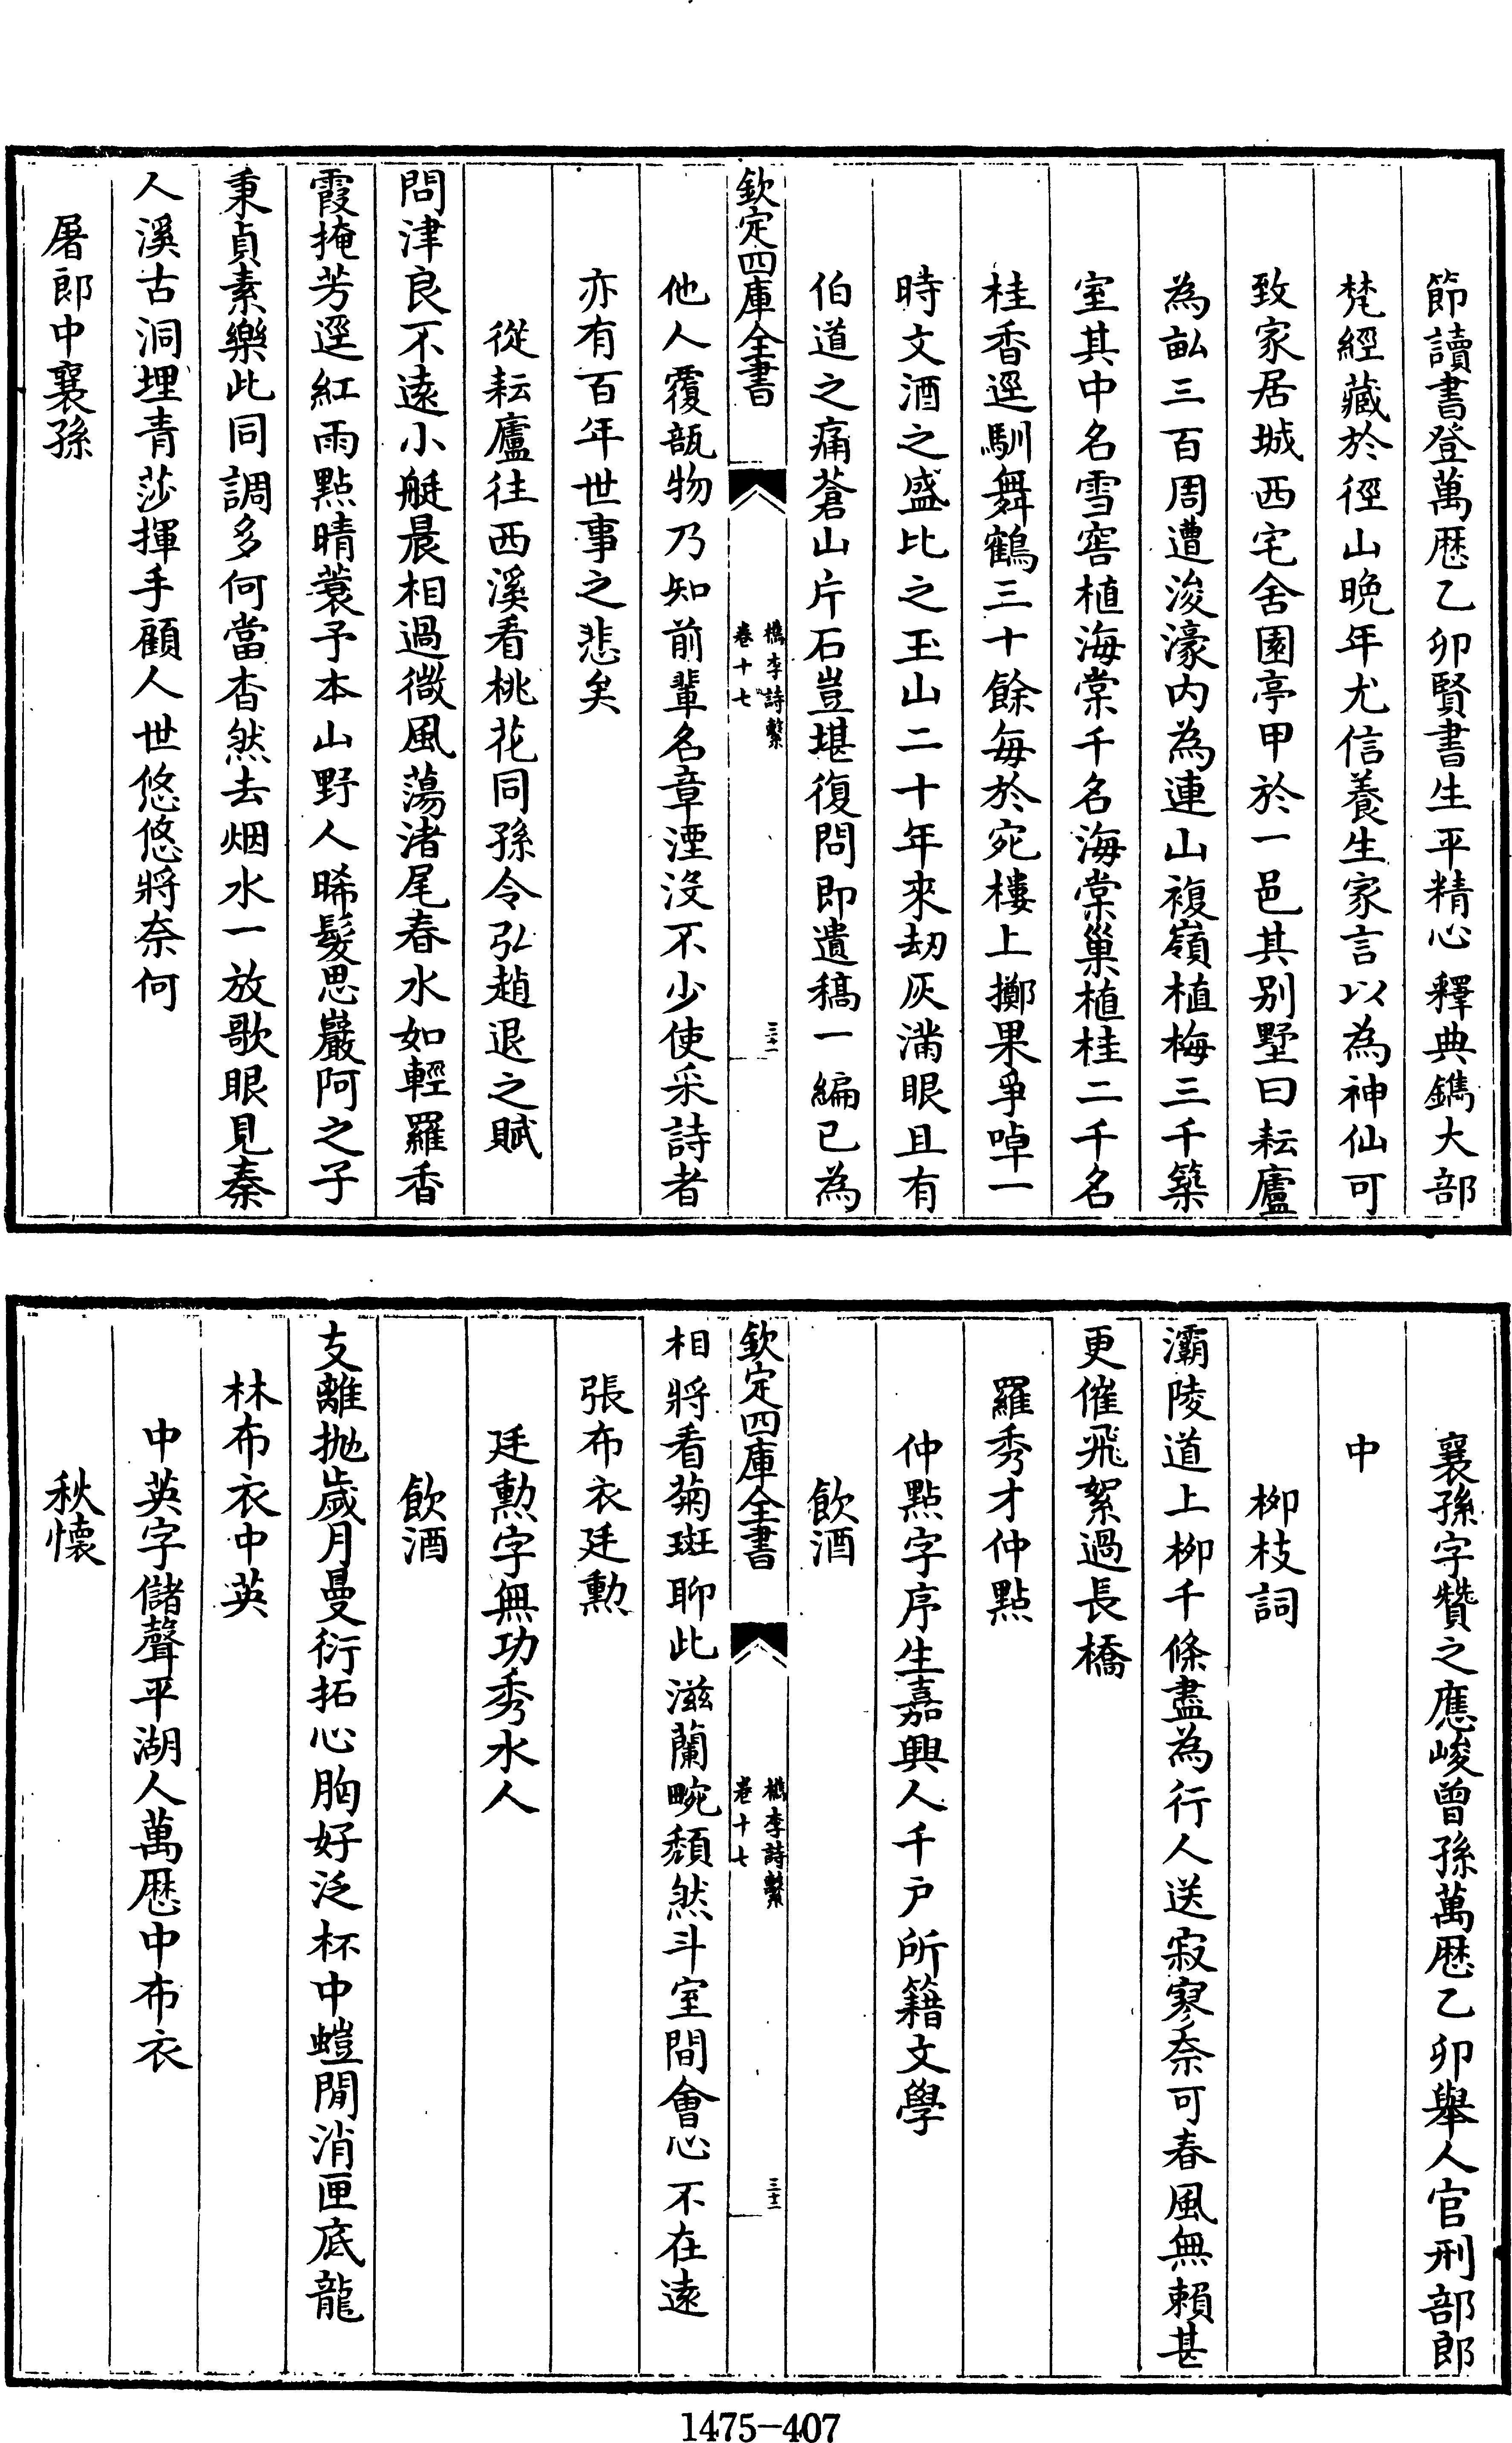 節讀書登萬厯乙卯賢書生平精心釋典鐫大部
梵經藏於徑山晚年尤信養生家言以為神仙可
致家居城西宅舍園亭甲於一邑其别墅曰耘廬
為畝三百周遭浚濠内為連山複嶺植梅三千築
室其中名雪窖植海棠千名海棠巢植桂二千名
桂香逕馴舞鶴三十餘每於宛樓上擲果爭啅一
時文酒之盛比之玉山二十年來刼灰滿眼且有
伯道之痛蒼山片石豈堪復問即遺稿一編已為
欽定四庫全書
檇李詩繫
卷十七
三十一
他人覆瓿物乃知前輩名章湮沒不少使采詩者
亦有百年世事之悲矣
從耘廬往西溪看桃花同孫令弘趙退之賦
問津良不遠小艇晨相過微風蕩渚尾春水如輕羅香
霞掩芳逕紅雨點晴蓑予本山野人晞髮思巖阿之子
秉貞素樂此同調多何當杳然去烟水一放歌眼見秦
人溪古洞埋青莎揮手顧人世悠悠將奈何
屠郎中襄孫
襄孫字贊之應峻曾孫萬厯乙卯舉人官刑部郎
中
柳枝詞
灞陵道上柳千條盡為行人送寂寥奈可春風無賴甚
更催飛絮過長橋
羅秀才仲點
仲點字序生嘉興人千户所籍文學
飲酒
欽定四庫全書
檇李詩繫
卷十七
三十二
相將看菊斑聊此滋蘭畹頹然斗室間會心不在遠
張布衣廷勲
廷勲字無功秀水人
飲酒
支離抛歲月曼衍拓心胸好泛杯中螘閒消匣底龍
林布衣中英
中英字儲聲平湖人萬厯中布衣
秋懷
1475-407